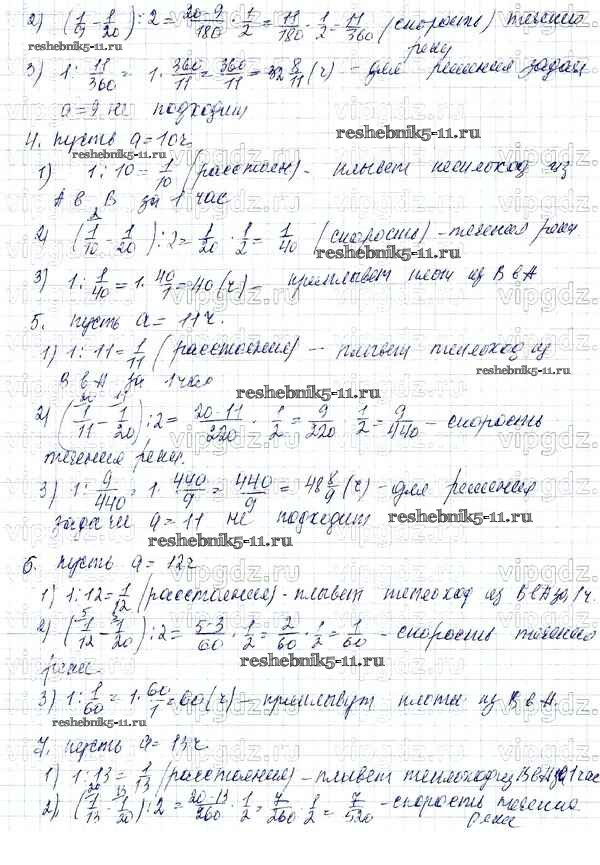 2) (1/9 - 1/20) : 2 = 20-9/180 · 1/2 = 11/180 · 1/2 = 11/360 (скорость) течения
реки
3) 1 : 11/360 = 1 · 360/11 = 360/11 = 32 8/11 (ч) – для решения задачи
a = 9 не подходит
reshebnik5-11.ru
4. Пусть a = 10ч
reshebnik5-11.ru
1) 1 : 10 = 1/10 (расстоян) – плывет теплоход из
А в В за 1 час
reshebnik5-11.ru
2) (1/10 - 1/20) : 2 = 1/20 · 1/2 = 1/40 (скорость) – течения реки
reshebnik5-11.ru
3) 1 : 1/40 = 1 · 40/1 = 40 (ч) – приплывет плот из В в А
reshebnik5-11.ru
5. Пусть a = 11ч.
1) 1 : 11 = 1/11 (расстояния) – плывет теплоход из
reshebnik5-11.ru
В в А за 1 час
reshebnik5-11.ru
2) (1/11 - 1/20) : 2 = 20-11/220 · 1/2 = 9/220 · 1/2 = 9/440 – скорость
течения реки.
reshebnik5-11.ru
3) 1 : 9/440 = 1 · 440/9 = 440/9 = 48 8/9 (ч) – для решения
задачи a = 11 не подходит
reshebnik5-11.ru
reshebnik5-11.ru
6. Пусть a = 12ч
1) 1 : 12 = 1/12 (расстояния) – плывет теплоход из В в А за 1 ч.
reshebnik5-11.ru
2) (1/12 - 1/20) : 2 = 5-3/60 · 1/2 = 2/60 · 1/2 = 1/60 – скорость течения
реки.
reshebnik5-11.ru
3) 1 : 1/60 = 1 · 60/1 = 60 (ч) – приплывут плоты из В в А.
reshebnik5-11.ru
7. Пусть a = 13ч
reshebnik5-11.ru
1) 1 : 13 = 1/13 (расстояния) – плывет теплоход из В в А за 1 час
2) (1/13 - 1/20) : 2 = 20-13/260 · 1/2 = 7/260 · 1/2 = 7/520 – скорость течения
реки
vipgdz.